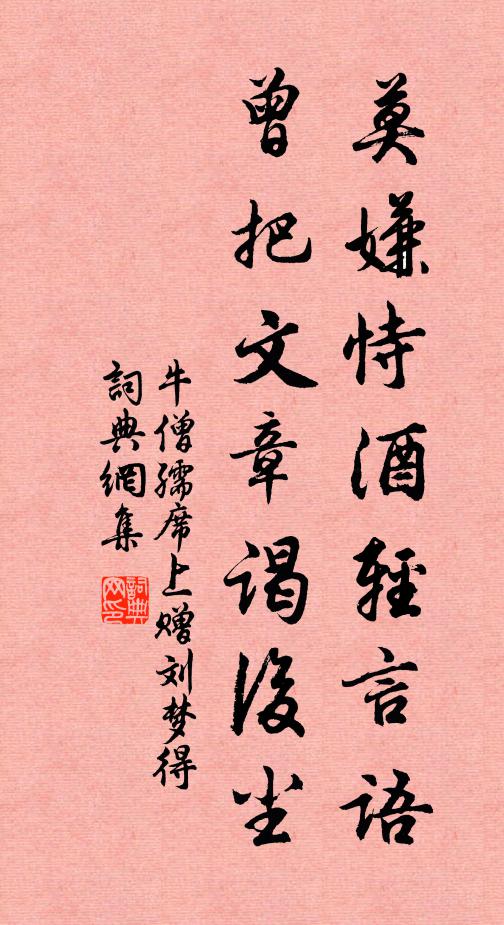 莫嫌恃酒輕言語
曾把文章謁後尘
牛僧孺席上赠刘梦得
詞典網集
詞典网印